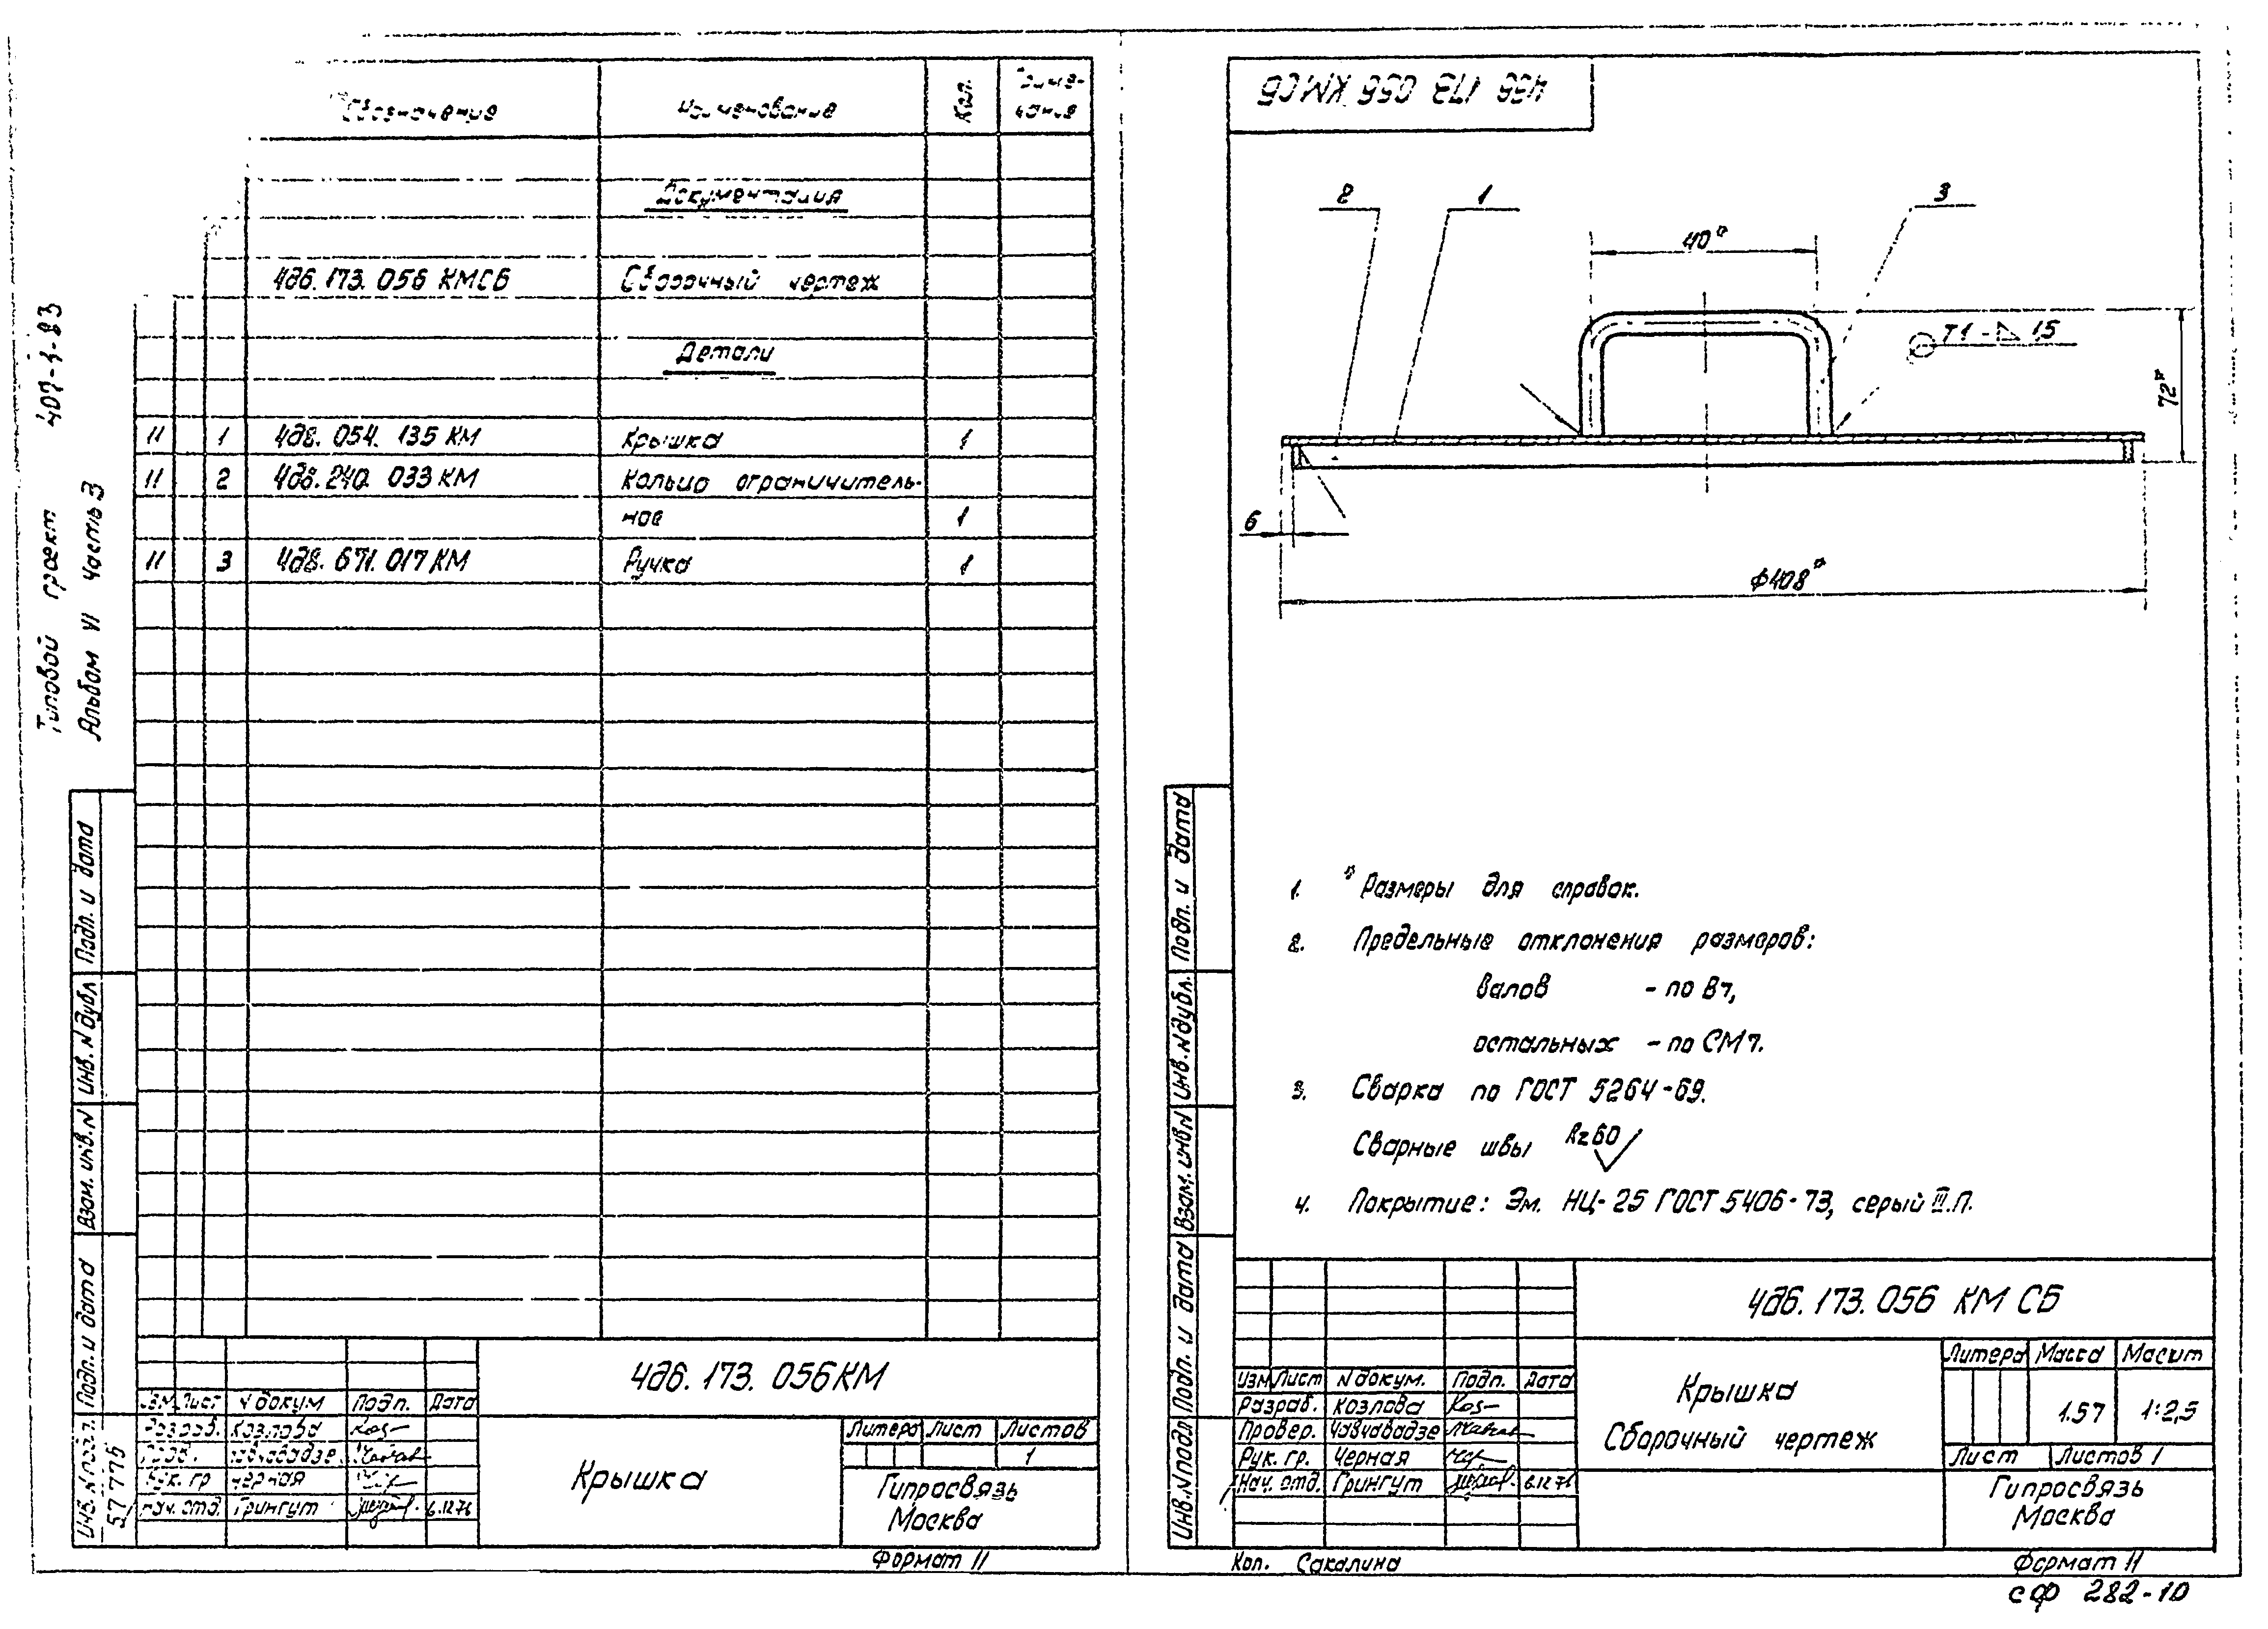 Типовой проект 407-3-83
Альбом VI Часть 3
Обозначение Наименование Кол. Приме-
чание
Документация
4д6.173.056 КМСБ Сборочный чертеж
Детали
11 1 4д8.054.135 КМ Крышка 1
11 2 4д8.240.033 КМ Кольцо ограничитель-
ное 1
11 3 4д8.671.017 КМ Ручка 1
Подп. и дата
Инв. N дубл
Взам. инв. N
Подп. и дата
Инв. N подл.
57776
4д6.173.056 КМ
Изм. Лист N докум Подп. Дата
Разраб. Козлова
Пров. Чавчавадзе
Рук. гр Черная
Нач. отд. Грингут 6.12.76
Крышка
Литера Лист Листов
1
Гипросвязь
Москва
Формат 11
4д6 173 056 КМСБ
2 1 3
40*
T1 - ◺ 1,5
72*
6
ф408*
1. * Размеры для справок.
2. Предельные отклонения размеров:
валов - по В7,
остальных - по СМ7.
3. Сварка по ГОСТ 5264-69.
Сварные швы Rz60
4. Покрытие: Эм. НЦ-25 ГОСТ 5406-73, серый III.П.
Подп. и дата
Инв. N дубл.
Взам. инв N
Подп. и дата
Инв. N подл
4д6.173.056 КМ СБ
Изм Лист N докум. Подп. Дата
Разраб. Козлова
Провер. Чавчавадзе
Рук. гр. Черная
Нач. отд. Грингут 6.12.76
Крышка
Сборочный чертеж
Литера Масса Масшт
1.57 1:2,5
Лист Листов 1
Гипросвязь
Москва
Коп. Сакалина
Формат 11
сф 282-10